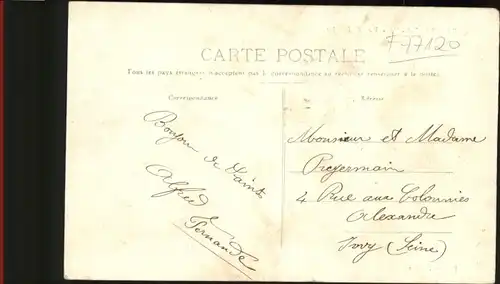 F 17120
CARTE POSTALE
Tous les pays étrangers n'acceptent pas la correspondance au recto (se renseigner à la poste).
Correspondance
Adresse
Bonjour de Sainte
Alfred
Fernande
Monsieur et Madame
4 Rue aux Colonnies
Alexandre
Ivry (Seine)